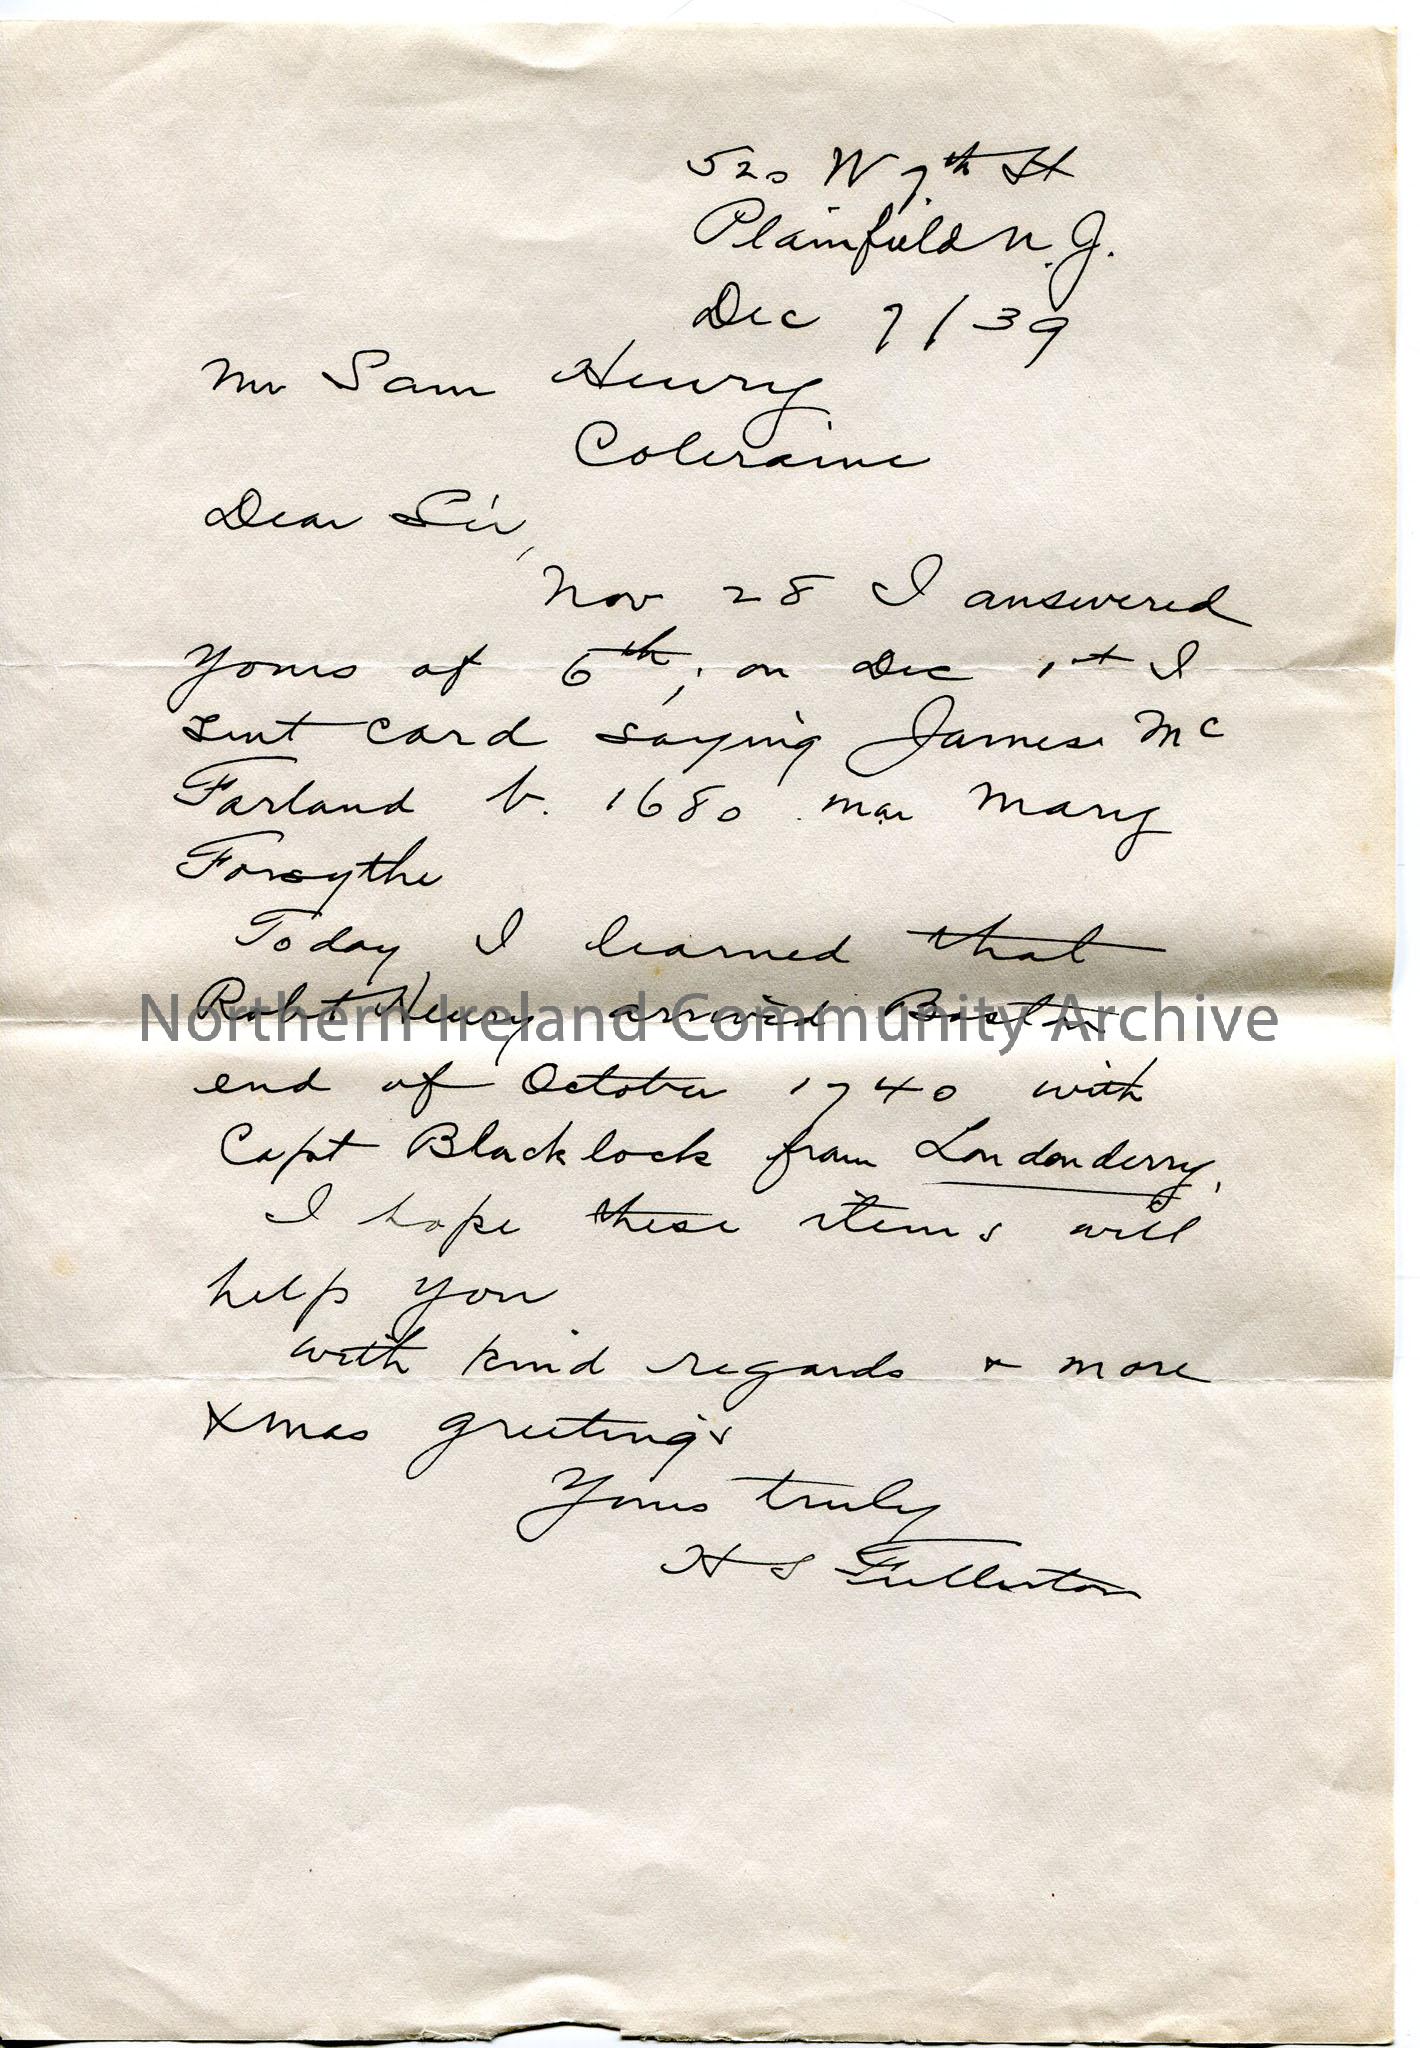 520 W 7th St
Plainfield N.J.
Dec 7/39
Mr Sam Henry
Coleraine
Dear Sir,
Nov 28 I answered
yours of 6th; on Dec 1st I
sent card saying James Mc
Farland b. 1680 mar Mary
Forsythe
Today I learned that
Robt Henry arrived Boston
Northern Ireland Community Archive
end of October 1740 with
Capt Blacklock from Londonderry.
I hope these items will
help you
with kind regards & more
Xmas greetings
Yours truly
H S Fullerton